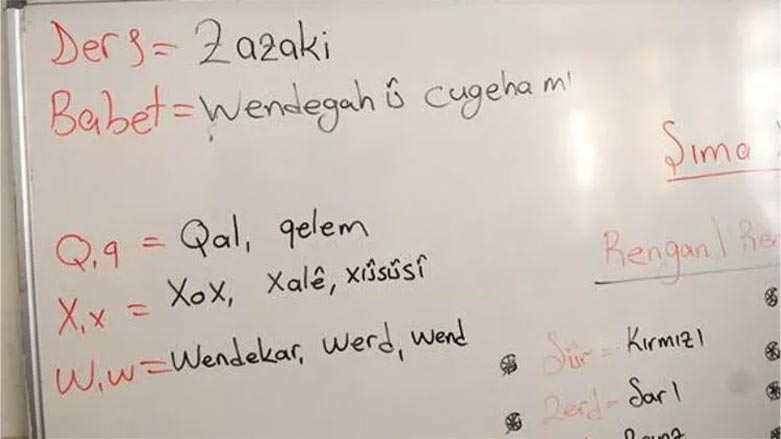 Ders = Zazaki
Babet = Wendegah û cugeha mı
Q,q = Qal, qelem
X,x = XoX, Xalê, xûsûsî
W,w = Wendekar, Werd, wend
Şıma
Rengan
Sûr = Kırmızı
Zerd = Sarı